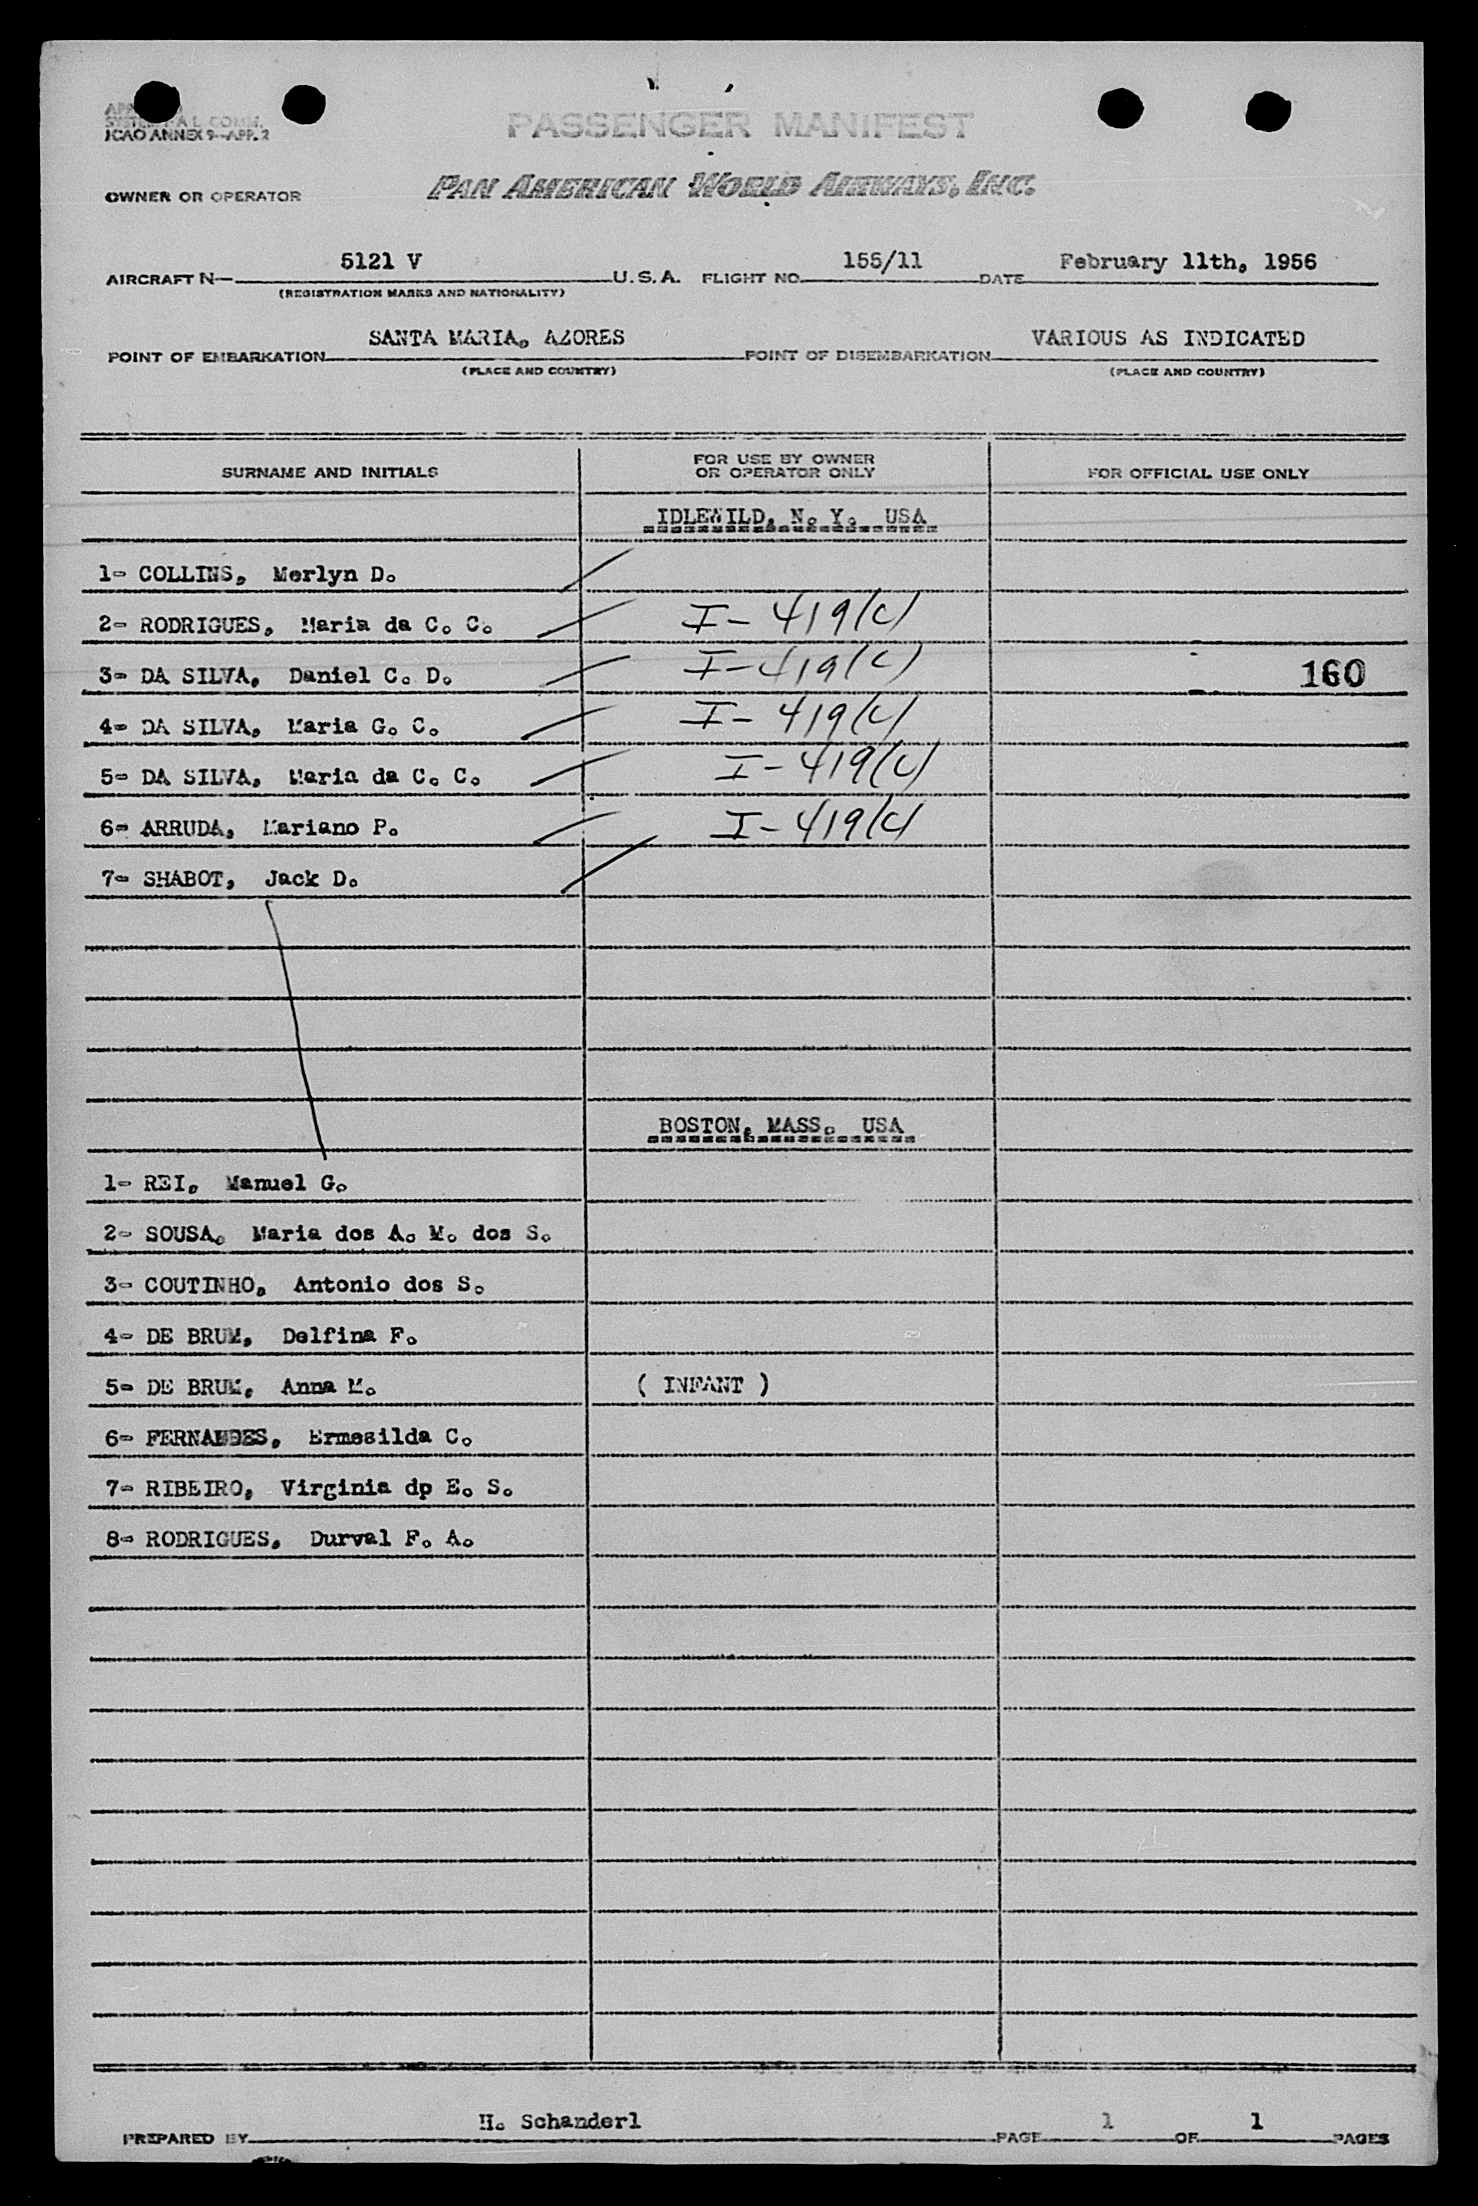 JCAO ANNEX 9—APP. 2
PASSENGER MANIFEST
OWNER OR OPERATOR PAN AMERICAN WORLD AIRWAYS, INC.
AIRCRAFT N— 5121 V U.S.A. FLIGHT NO. 155/11 DATE February 11th, 1956
(REGISTRATION MARKS AND NATIONALITY)
POINT OF EMBARKATION SANTA MARIA, AZORES POINT OF DISEMBARKATION VARIOUS AS INDICATED
(PLACE AND COUNTRY) (PLACE AND COUNTRY)
SURNAME AND INITIALS FOR USE BY OWNER OR OPERATOR ONLY FOR OFFICIAL USE ONLY
IDLEWILD, N. Y. USA
1- COLLINS, Merlyn D.
2- RODRIGUES, Maria da C. C. I-419(c)
3- DA SILVA, Daniel C. D. I-419(c) 160
4- DA SILVA, Maria G. C. I-419(c)
5- DA SILVA, Maria da C. C. I-419(c)
6- ARRUDA, Mariano P. I-419(c)
7- SHABOT, Jack D.
BOSTON, MASS. USA
1- REI, Manuel G.
2- SOUSA, Maria dos A. M. dos S.
3- COUTINHO, Antonio dos S.
4- DE BRUM, Delfina F.
5- DE BRUM, Anna M. ( INFANT )
6- FERNANDES, Ermesilda C.
7- RIBEIRO, Virginia dp E. S.
8- RODRIGUES, Durval F. A.
PREPARED BY H. Schanderl PAGE 1 OF 1 PAGES